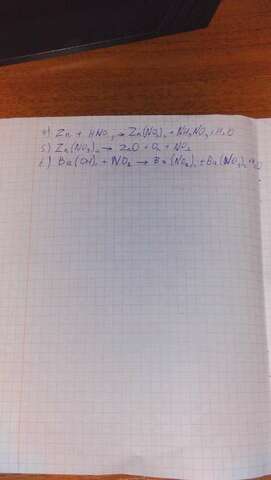 4) Zn + HNO₃ → Zn(NO₃)₂ + NH₄NO₃ + H₂O
5) Zn(NO₃)₂ → ZnO + O₂ + NO₂
6) Ba(OH)₂ + NO₂ → Ba(NO₃)₂ + Ba(NO₂)₂ + H₂O